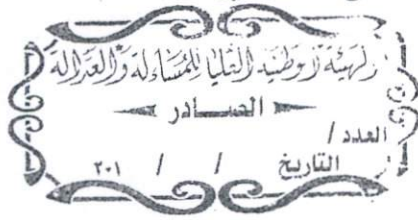 الهيئة الوطنية العليا للمساءلة والعدالة
الصـــادر
العدد /
التاريخ / / ٢٠١